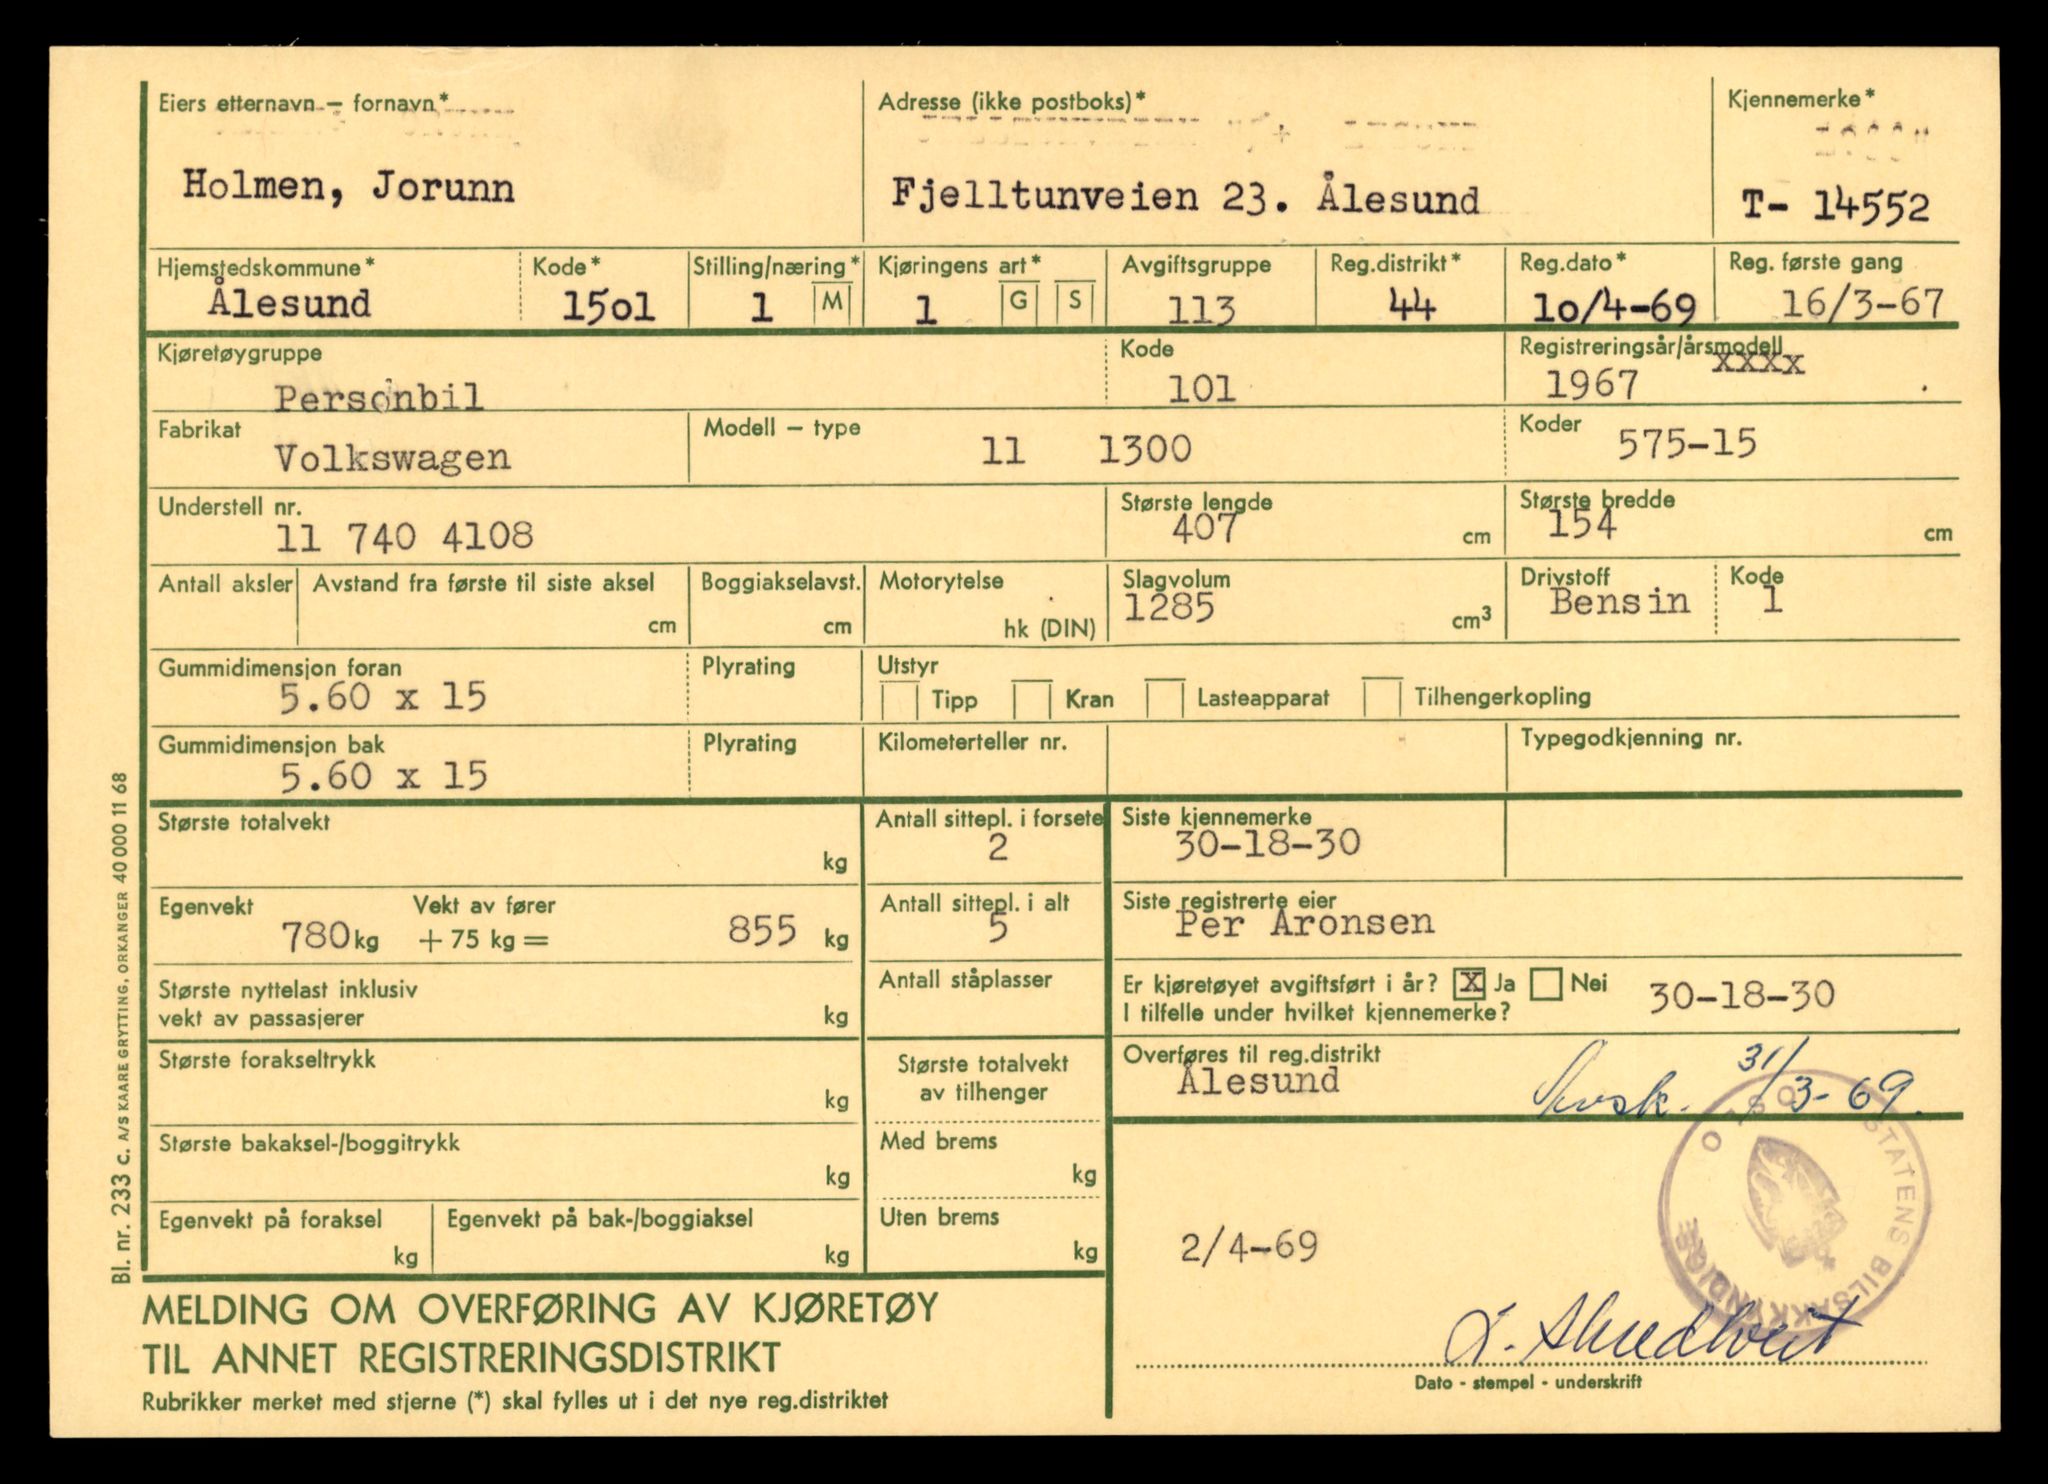 Eiers etternavn – fornavn* Adresse (ikke postboks)* Kjennemerke*
Holmen, Jorunn Fjelltunveien 23. Ålesund T- 14552
Hjemstedskommune* Kode* Stilling/næring* Kjøringens art* Avgiftsgruppe Reg.distrikt* Reg.dato* Reg. første gang
Ålesund 15o1 1 M 1 G S 113 44 1o/4-69 16/3-67
Kjøretøygruppe Kode Registreringsår/årsmodell
xxxx
Personbil 101 1967
Fabrikat Modell – type Koder
Volkswagen 11 1300 575-15
Understell nr. Største lengde Største bredde
11 740 4108 407 cm 154 cm
Antall aksler Avstand fra første til siste aksel Boggiakselavst. Motorytelse Slagvolum Drivstoff Kode
cm cm hk (DIN) 1285 cm3 Bensin 1
Gummidimensjon foran Plyrating Utstyr
5.60 x 15 Tipp Kran Lasteapparat Tilhengerkopling
Gummidimensjon bak Plyrating Kilometerteller nr. Typegodkjenning nr.
5.60 x 15
Største totalvekt kg Antall sittepl. i forsete Siste kjennemerke
2 30-18-30
Egenvekt Vekt av fører Antall sittepl. i alt Siste registrerte eier
780 kg + 75 kg = 855 kg 5 Per Aronsen
Største nyttelast inklusiv Antall ståplasser Er kjøretøyet avgiftsført i år? X Ja Nei 30-18-30
vekt av passasjerer kg I tilfelle under hvilket kjennemerke?
Største forakseltrykk kg Største totalvekt Overføres til reg.distrikt
av tilhenger Ålesund 31/3-69.
Største bakaksel-/boggitrykk kg Med brems kg
Egenvekt på foraksel kg Egenvekt på bak-/boggiaksel kg Uten brems kg
2/4-69
OSLO STATENS BILSAKKYNDIGE
MELDING OM OVERFØRING AV KJØRETØY
TIL ANNET REGISTRERINGSDISTRIKT
Rubrikker merket med stjerne (*) skal fylles ut i det nye reg.distriktet
Dato - stempel - underskrift
Bl. nr. 233 c. A/S KAARE GRYTTING, ORKANGER 40 000 11 68